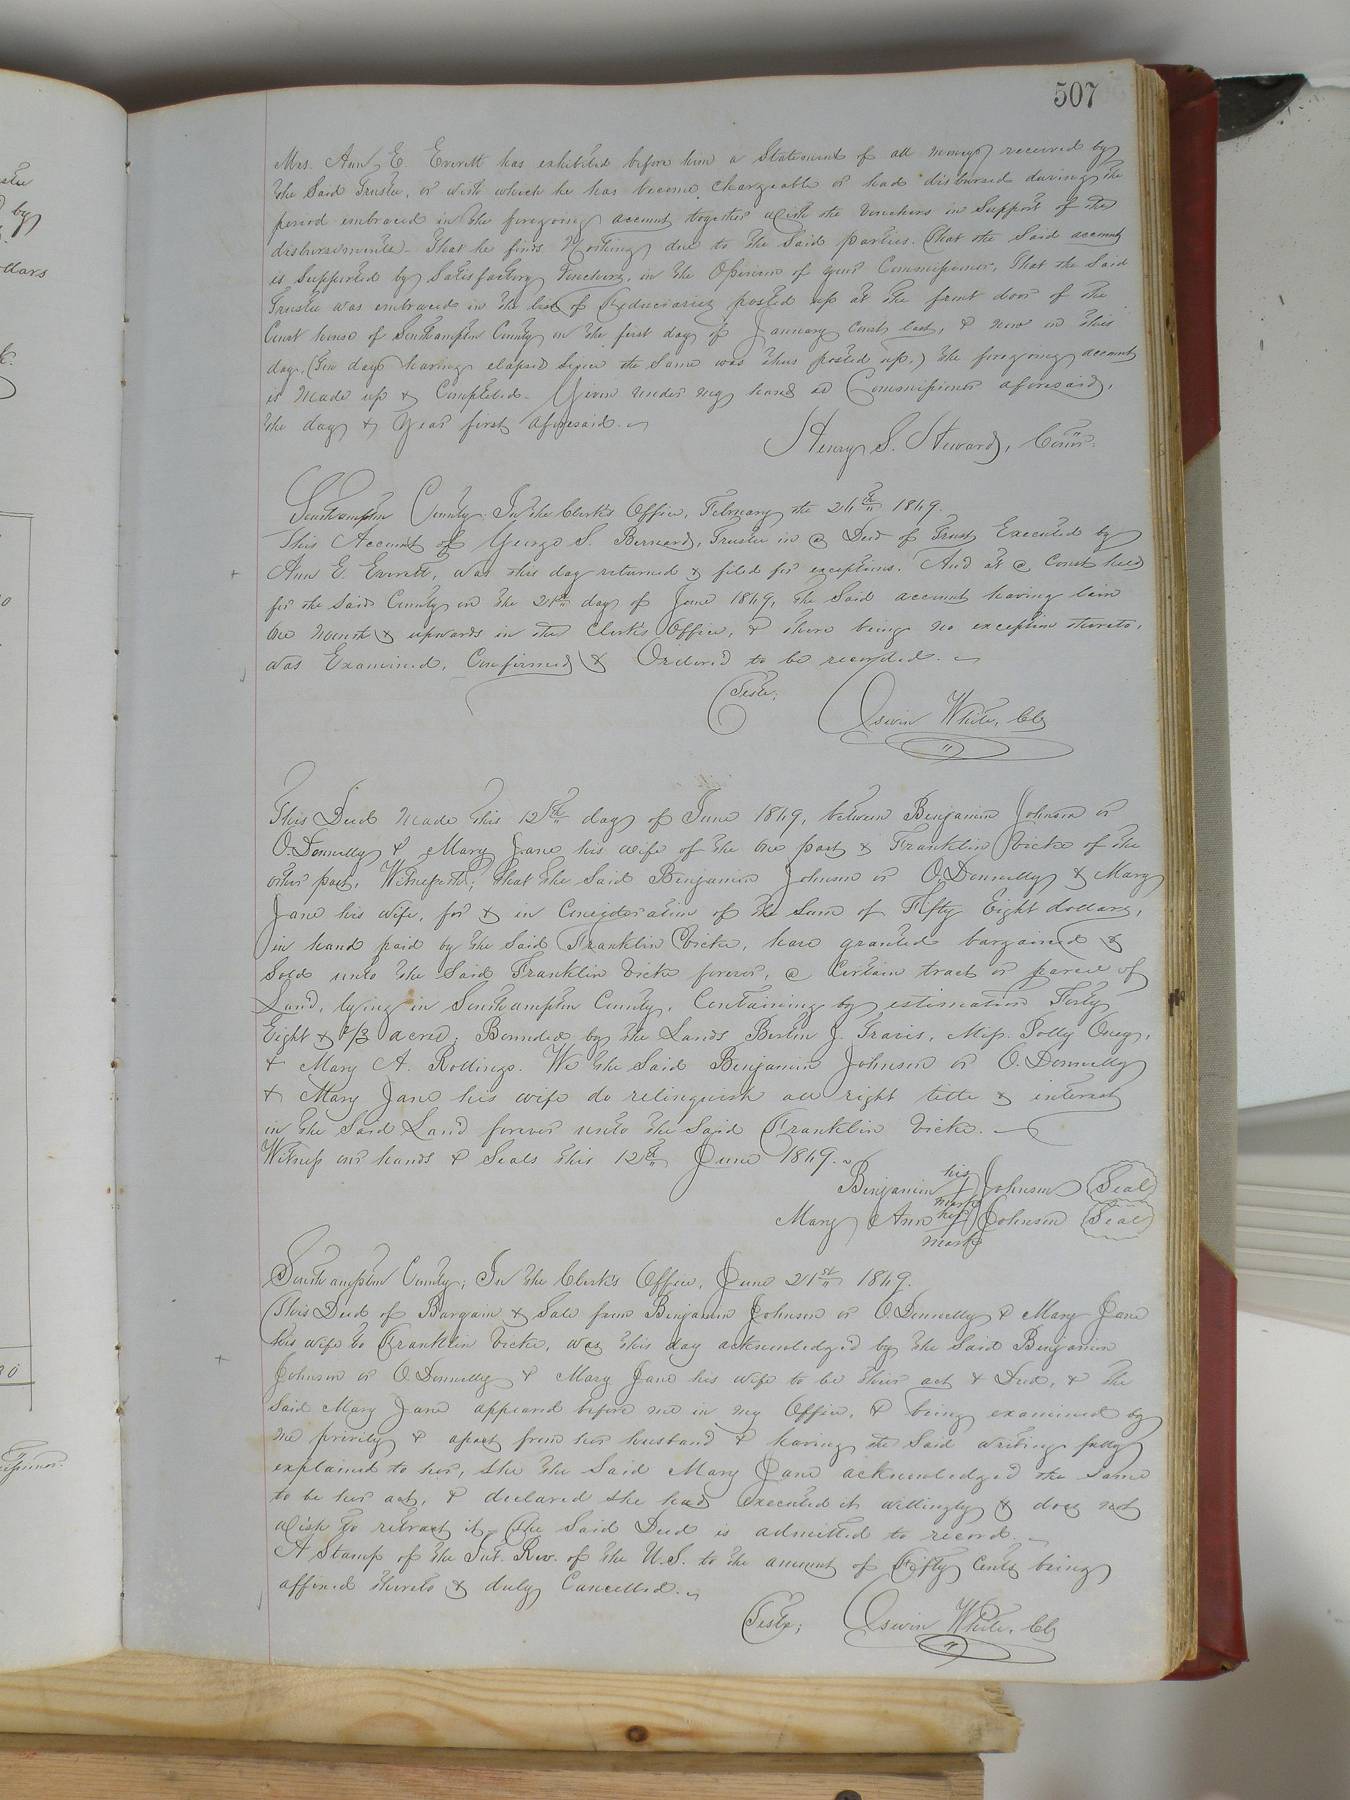 507
Mrs. Ann E. Everett has exhibited before him a Statement of all moneys received by
the Said Trustee, or with which he has become chargeable or had disbursed during the
period embraced in the foregoing account together with the Vouchers in Support of the
disbursements. That he finds Nothing due to the Said parties. That the Said account
is Supported by Satisfactory Vouchers, in the Opinion of your Commissioner, That the Said
Trustee was embraced in the list of Fiduciaries posted up at the front door of the
Court house of Southampton County on the first day of January Court last, & now on this
day, (Ten days having elapsed since the Same was thus posted up,) the foregoing account
is Made up & Completed. Given under my hand as Commissioner aforesaid,
the day & Year first aforesaid.
Henry S. Howard, Comr.
Southampton County: In the Clerk's Office, February the 24th 1869.
This Account of George S. Bernard, Trustee in a Deed of Trust Executed by
Ann E. Everett, was this day returned & filed for exceptions. And at a Court held
for the Said County on the 21st day of June 1869, the Said account having been
One Month & upwards in the Clerk's Office, & there being no exception thereto,
was Examined, Confirmed & Ordered to be recorded.
Teste;
Oswin White, Clk
This Deed Made this 12th day of June 1869, between Benjamin Johnson or
O. Donnelly & Mary Jane his wife of the one part & Franklin Vick of the
other part, Witnesseth; that the Said Benjamin Johnson or O. Donnelly & Mary
Jane his wife, for & in Consideration of the Sum of Fifty Eight dollars,
in hand paid by the Said Franklin Vick, have granted bargained &
Sold unto the Said Franklin Vick forever, a Certain tract or parcel of
Land, lying in Southampton County, Containing by estimation Forty
Eight & 1/3 acres; Bounded by the Lands J. Travis, Miss. Polly
& Mary A. Rollings. We the Said Benjamin Johnson or O. Donnelly
& Mary Jane his wife do relinquish all right title & interest
in the Said Land forever unto the Said Franklin Vick.
Witness our hands & Seals this 12th June 1869.
his
Benjamin Johnson Seal
mark
her
Mary Ann Johnson Seal
mark
Southampton County; In the Clerk's Office, June 21st 1869.
This Deed of Bargain & Sale from Benjamin Johnson or O. Donnelly & Mary Jane
his wife to Franklin Vick, was this day acknowledged by the Said Benjamin
Johnson or O. Donnelly & Mary Jane his wife to be their act & Deed, & the
Said Mary Jane appeared before me in my Office, & being examined by
me privily & apart from her husband & having the Said writing fully
explained to her, She the Said Mary Jane acknowledged the Same
to be her act, & declared She had executed it willingly & does not
wish to retract it. The Said Deed is admitted to record.
A Stamp of the Int. Rev. of the U.S. to the amount of Fifty Cents being
affixed thereto & duly Cancelled.
Teste;
Oswin White, Clk